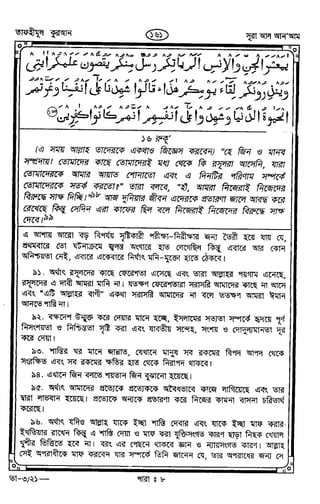 তাফহীমুল কুরআন
১৬১
সূরা আল আন'আম
يٰمَعْشَرَ الْجِنِّ وَالْاِنْسِ اَلَمْ يَاْتِكُمْ رُسُلٌ مِّنْكُمْ يَقُصُّوْنَ عَلَيْكُمْ اٰيٰتِيْ
وَيُنْذِرُوْنَكُمْ لِقَآءَ يَوْمِكُمْ هٰذَا ؕ قَالُوْا شَهِدْنَا عَلٰٓى اَنْفُسِنَا وَغَرَّتْهُمُ
الْحَيٰوةُ الدُّنْيَا وَشَهِدُوْا عَلٰٓى اَنْفُسِهِمْ اَنَّهُمْ كَانُوْا كٰفِرِيْنَ
১৬ রুকূ'
(এ সময় আল্লাহ তাদেরকে একথাও জিজ্ঞেস করবেন) "হে জিন ও মানব
সম্প্রদায়! তোমাদের কাছে তোমাদেরই মধ্য থেকে কি রসূলরা আসেনি, যারা
তোমাদেরকে আমার আয়াত শোনাতো এবং এ দিনটির পরিণাম সম্পর্কে
তোমাদেরকে সতর্ক করতো?" তারা বলবে, "হাঁ, আমরা নিজেরাই নিজেদের
বিরুদ্ধে সাক্ষ দিচ্ছি।" আজ দুনিয়ার জীবন এদেরকে প্রতারণা জালে আবদ্ধ করে
রেখেছে কিন্তু সেদিন এরা কাফের ছিল বলে নিজেরাই নিজেদের বিরুদ্ধে সাক্ষ
দেবে।
এ আশায় আরো বড় বিপর্যয় সৃষ্টিকারী পরীক্ষা-নিরীক্ষার জন্য তৈরী হয়ে যায় যে,
প্রথমবারে তো ঘটনাক্রমে জ্বলন্ত অংগারে হাত লেগেছিল কিন্তু এবারে আর কোন
অনিশ্চয়তা নেই, এবারে একেবারে নির্ঘাত মনি-মুক্তো হাতে ঠেকবে।
৯১. অর্থাৎ রসূলদের কাছে ফেরেশতা এসেছে এবং তারা আল্লাহর পয়গাম এনেছে,
রসূলদের এ দাবী আমরা মানি না। যতক্ষণ ফেরেশতারা সরাসরি আমাদের কাছে না আসে
এবং "এটি আল্লাহর বাণী" একথা সরাসরি আমাদের না বলে ততক্ষণ আমরা ঈমান
আনতে পারি না।
৯২. বক্ষদেশ উন্মুক্ত করে দেয়ার মানে হচ্ছে, ইসলামের সত্যতা সম্পর্কে হৃদয়ে পূর্ণ
নিসংশয়তা ও নিশ্চিন্ততা সৃষ্টি করা এবং যাবতীয় সন্দেহ, সংশয় ও দোদুল্যমানতা দূর
করে দেয়া।
৯৩. শান্তির ঘর মানে জান্নাত, যেখানে মানুষ সব রকমের বিপদ আপদ থেকে
সংরক্ষিত এবং সব রকমের ক্ষতির হাত থেকে নিরাপদ থাকবে।
৯৪. এখানে জিন বলতে শয়তান জিন বুঝানো হয়েছে।
৯৫. অর্থাৎ আমাদের প্রত্যেকে প্রত্যেককে অবৈধভাবে কাজে লাগিয়েছে এবং তার
দ্বারা লাভবান হয়েছে। প্রত্যেকে অন্যকে প্রতারণা করে নিজের কামনা বাসনা চরিতার্থ
করেছে।
৯৬. অর্থাৎ যদিও আল্লাহ যাকে ইচ্ছা শাস্তি দেবার এবং যাকে ইচ্ছা মাফ করার
ইখতিয়ার রাখেন কিন্তু এ শাস্তি দেয়া ও মাফ করা যুক্তিসংগত কারণ ছাড়া নিছক খেয়াল
খুশীর ভিত্তিতে হবে না। বরং এর পেছনে থাকবে জ্ঞান ও ন্যায়সংগত কারণ। আল্লাহ
সেই অপরাধীকে মাফ করবেন যার সম্পর্কে তিনি জানেন যে, তার অপরাধের জন্য সে
তা-৩/২১—
পারা : ৮